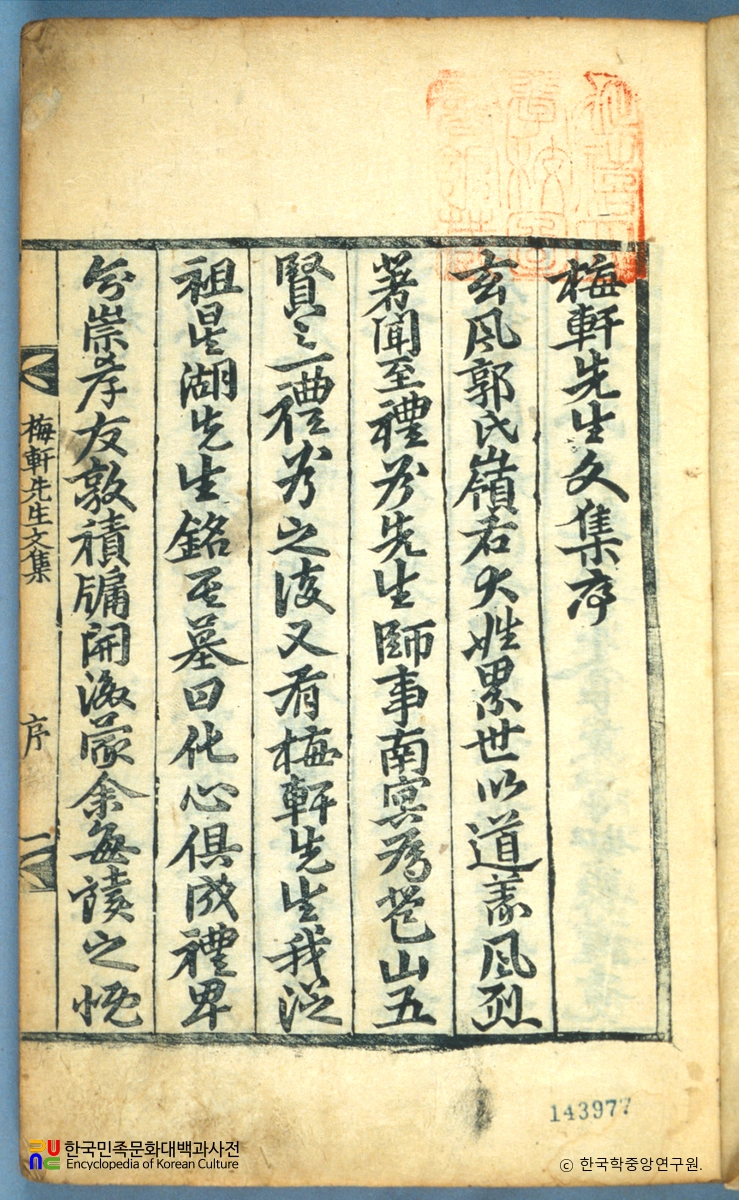 梅軒先生文集序
玄風郭氏嶺右大姓累世以道義風烈
著聞至禮谷先生師事南冥為苞山五
賢之一禮谷之後又有梅軒先生我從
祖星湖先生銘其墓曰化心俱成禮卑
分崇孝友敦積牖開激蒙余每讀之慨
梅軒先生文集 序 一
143977
한국민족문화대백과사전
Encyclopedia of Korean Culture
© 한국학중앙연구원.